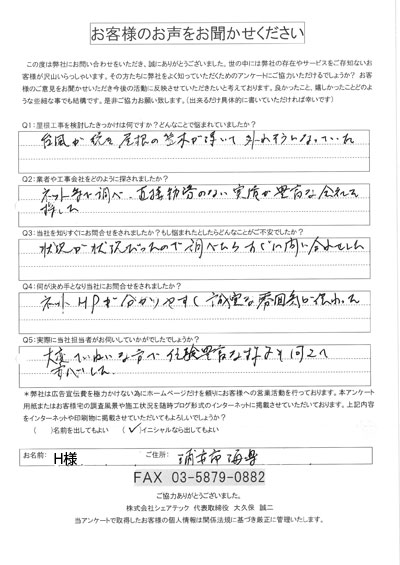 お客様のお声をお聞かせください
この度は弊社にお問い合わせをいただき、誠にありがとうございます。世の中には弊社の存在やサービスをご存知ないお
客様が沢山いらっしゃいます。その方たちに弊社をよく知っていただくためのアンケートにご協力いただけるでしょうか？ お客
様のご意見をお聞かせいただき今後の活動に反映させていきたいと考えております。良かったこと、嬉しかったことどのよ
うな些細な事でも結構です。是非ご協力お願い致します。（出来るだけ具体的に書いていただければ幸いです）
Q1：屋根工事を検討したきっかけは何ですか？どんなことで悩まれていましたか？
台風が続き屋根の笠木が浮いて外れそうになっていた
Q2：業者や工事会社をどのように探されましたか？
ネット等で調べ、直接勧誘のない実績が豊富な会社を
探した
Q3：当社を知りすぐにお問合せをされましたか？もし悩まれたとしたらどんなことがご不安でしたか？
状況が状況だったので調べたらすぐに問い合わせました
Q4：何が決め手となり当社にお問合せをされましたか？
ネットHPが分かりやすく誠実な雰囲気が伝わった
Q5：実際に当社担当者がお伺いしていかがでしたでしょうか？
大変ていねいな方で経験豊富な様子も伺えて
安心した
＊弊社は広告宣伝費を極力かけない為にホームページだけを頼りにお客様への営業活動を行っております。本アンケート
用紙またはお客様宅の調査風景や施工状況を随時ブログ形式のインターネットに掲載させていただいております。上記内容
をインターネットや印刷物に掲載させていただいてもよろしいでしょうか？
（ ）名前を出してもよい （✓）イニシャルなら出してもよい
お名前： H様 ご住所： 浦安市海楽
FAX 03-5879-0882
ご協力ありがとうございました。
株式会社シェアテック 代表取締役 大久保 誠二
当アンケートで取得したお客様の個人情報は関係法規に基づき厳正に管理いたします。